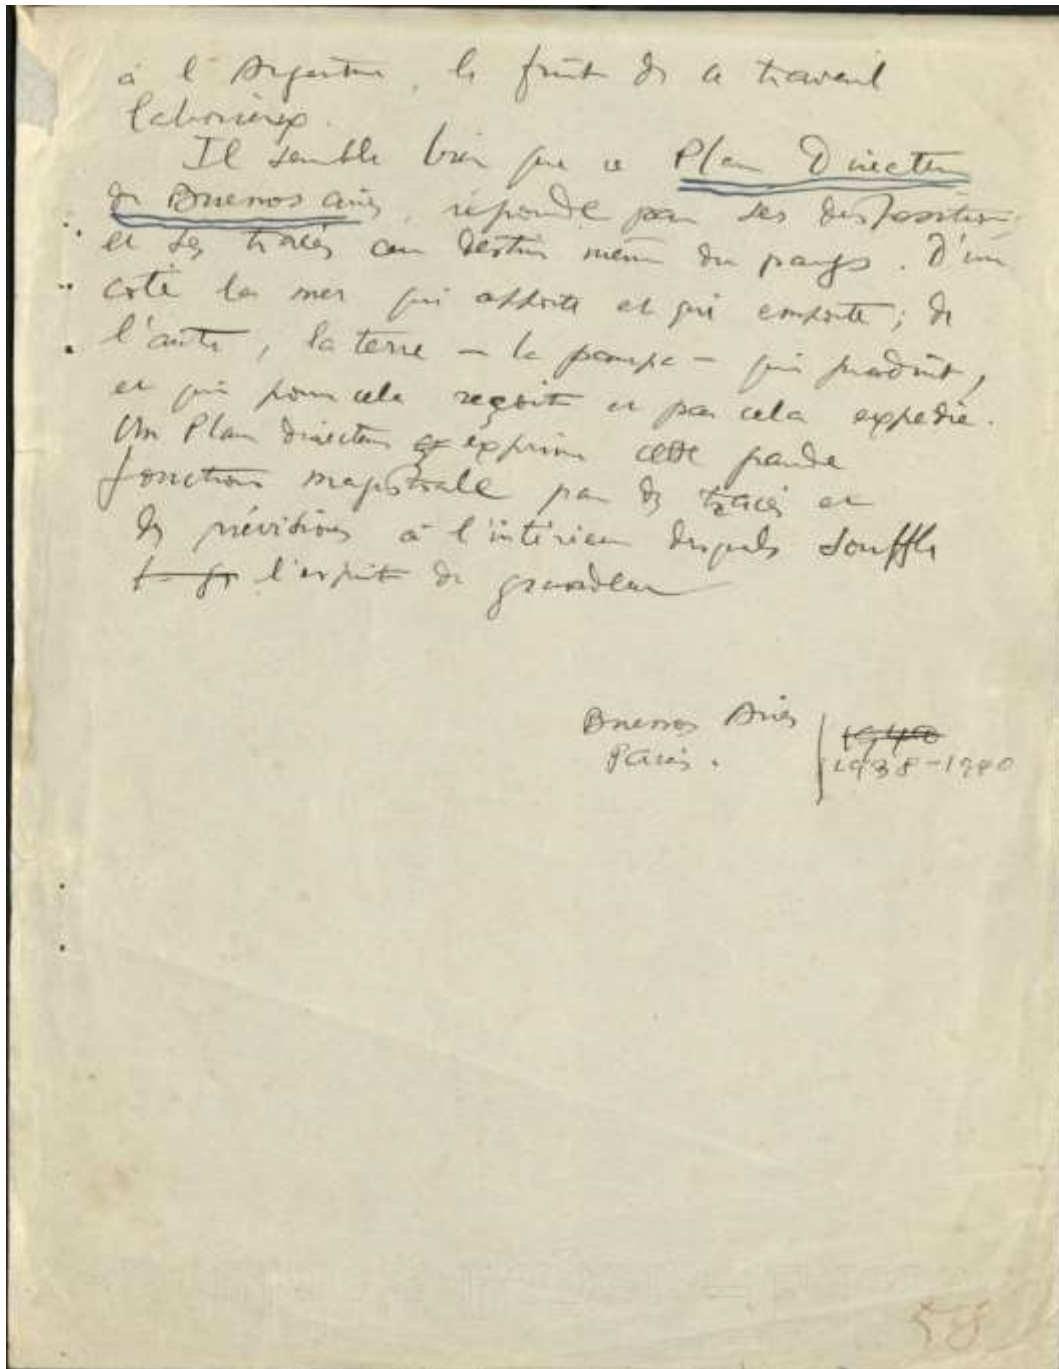 à l'Argentine, le fruit de ce travail
laborieux.
Il semble bien que ce Plan Directeur
de Buenos aires, réponde par ses dispositions
et ses tracés au destin même du pays. D'un
coté la mer qui apporte et qui emporte; de
l'autre, la terre – la pampa – qui produit,
et qui pour cela reçoit et par cela expedie.
Un Plan directeur exprime cette grande
fonction magistrale par des tracés et
des prévisions à l'intérieur desquels souffle
l'esprit de grandeur
Buenos Aires
Paris.
1940
1938-1940
58